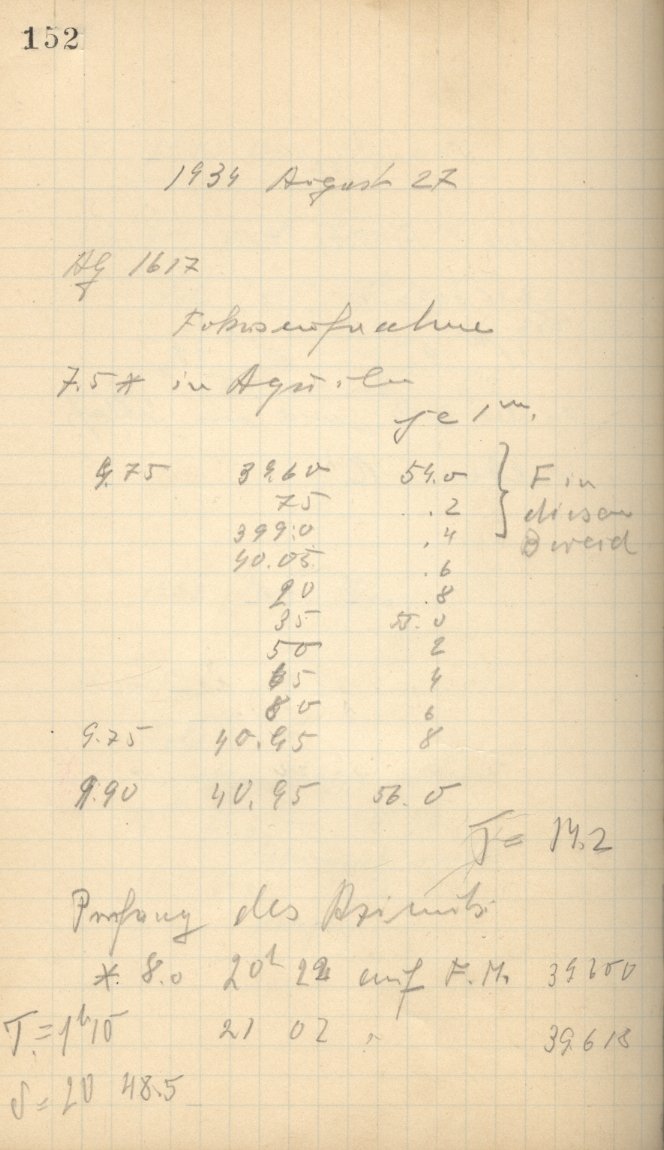 152
1934 August 27
AG 1617
Fokusaufnahme
7.5 * in Aquila
je 1ᵐ.
9.75 39.60 54.0 } F in
75 .2 diesem
39 9.0 .4 Bereich
40.05 .6
20 .8
35 55.0
50 2
65 4
80 6
9.75 40.95 8
9.90 40.95 56.0
T = 14.2
Prüfung des Azimuts
* 8.0 20ʰ 22 auf F.M.
T. = 1ʰ10 21 02 " 39.618
S = 20 48.5